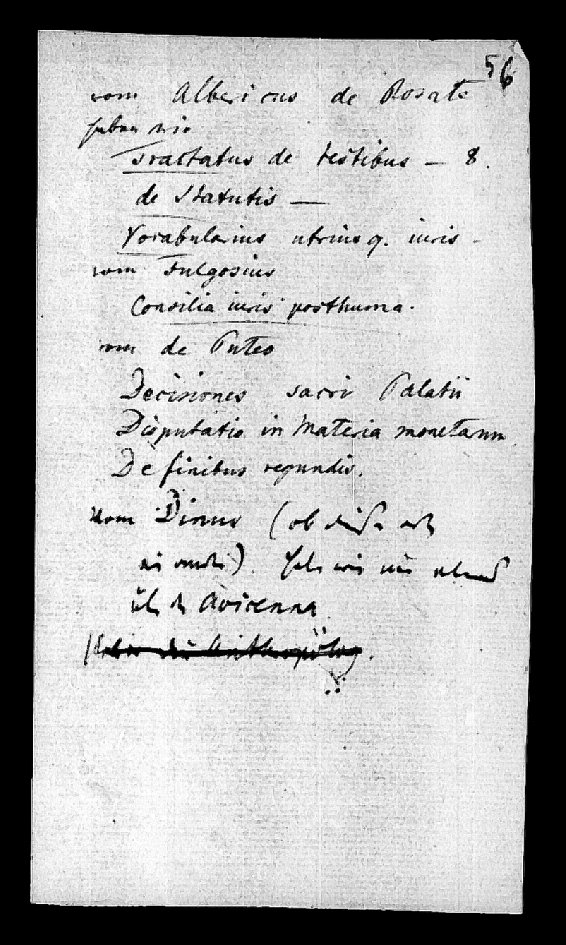 56
vom Albericus de Rosate
haben wir
Tractatus de testibus — 8.
de Statutis —
Vocabularius utriusq. iuris -
vom Fulgosius
Consilia iuris posthuma.
vom de Puteo
Decisiones sacri Palatii
Disputatio in materia monetarum
De finibus regundis.
vom Dinus (ob dieser
). haben wir
über Avicenna